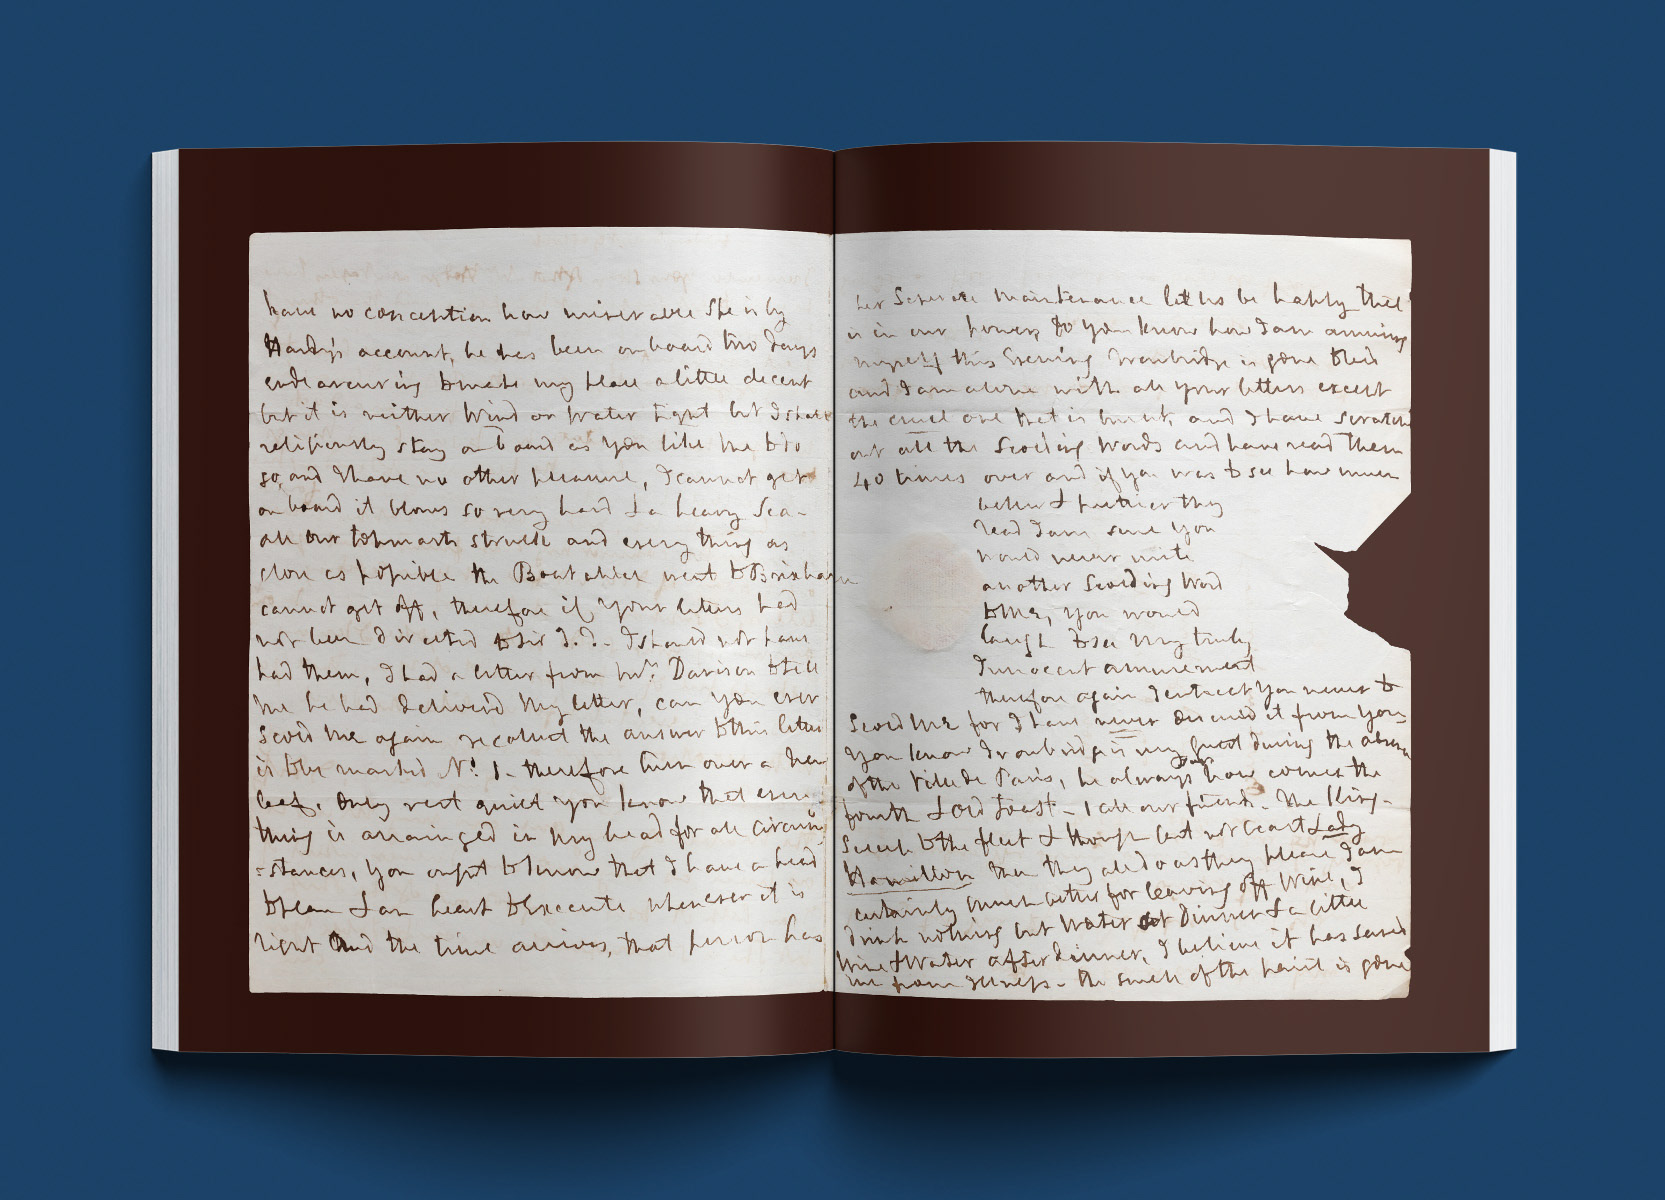 have no conception how miserable she is by
Hardy's account, he has been on board two days
endeavouring to make my place a little decent
but it is neither Wind or Water tight but I shall
religiously stay on board as you like me to do
so, and I have no other pleasure, I cannot get
on board it blows so very hard & a heavy Sea -
all our topmasts struck and every thing as
close as possible the Boat which went to Brixham
cannot get off, therefore if your letters had
not been directed to Sir T. T. I should not have
had them, I had a letter from Mr. Davison to tell
me he had delivered My letter, can you ever
Scold me again recollect the answer to this letter
is to be marked No. 1. therefore turn over a New
leaf. Only rest quiet you know that every
thing is arrainged in my head for all circum
=stances, you ought to know that I have a head
to plan & an heart to Execute whenever it is
right And the time arrives, that person has
her Seperate maintenance let us be happy that
is in our power, do you know how I am amusing
myself this Evening Troubridge is gone to bed
and I am alone with all your letters except
the cruel one that is burnt, and I have scratch
out all the Scolding Words and have read them
40 times over and if you was to see how much
better & prettier they
read I am sure you
would never write
another Scolding Word
to Me, you would
laugh to see My truly
Innocent amusement
therefore again I entreat you never to
Scold Me for I have never deserved it from you
you know Troubridge is my Guest during the absence
of the Ville de Paris, he always now comes the
fourth & Old toast - 1 all our friends - The King -
Success to the fleet & though last not least Lady
Hamilton then they all do as they please I am
certainly much better for leaving off Wine, I
drink nothing but Water at Dinner & a little
Wine & Water after dinner, I believe it has saved
me from Illness - the smell of the paint is gone